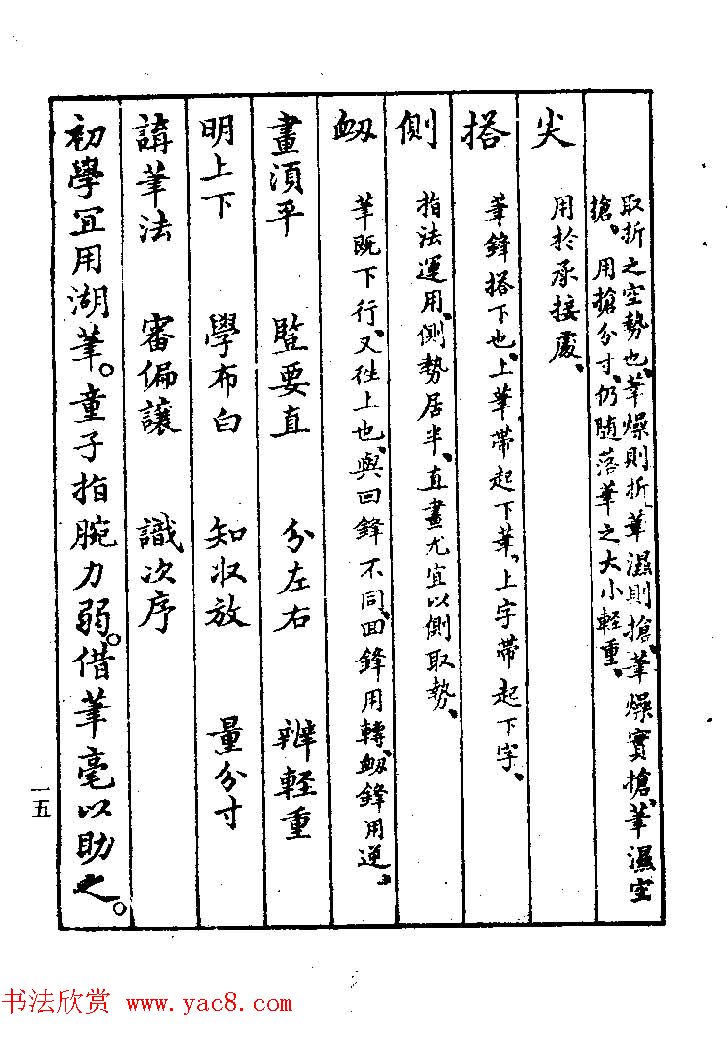 取折之空勢也、筆燥則折、筆濕則搶、筆燥實搶、筆濕空
搶、用搶分寸、仍随落筆之大小輕重、
尖 用於承接處、
搭 筆鋒搭下也、上筆帶起下筆、上字帶起下字、
側 指法運用、側勢居半、直畫尤宜以側取勢、
衂 筆既下行、又往上也、與回鋒不同、回鋒用轉、衂鋒用逆、
畫須平 監要直 分左右 辨輕重
明上下 學布白 知收放 量分寸
講筆法 審偏讓 識次序
初學宜用湖筆。童子指腕力弱。借筆毫以助之。
一五
书法欣赏 www.yac8.com